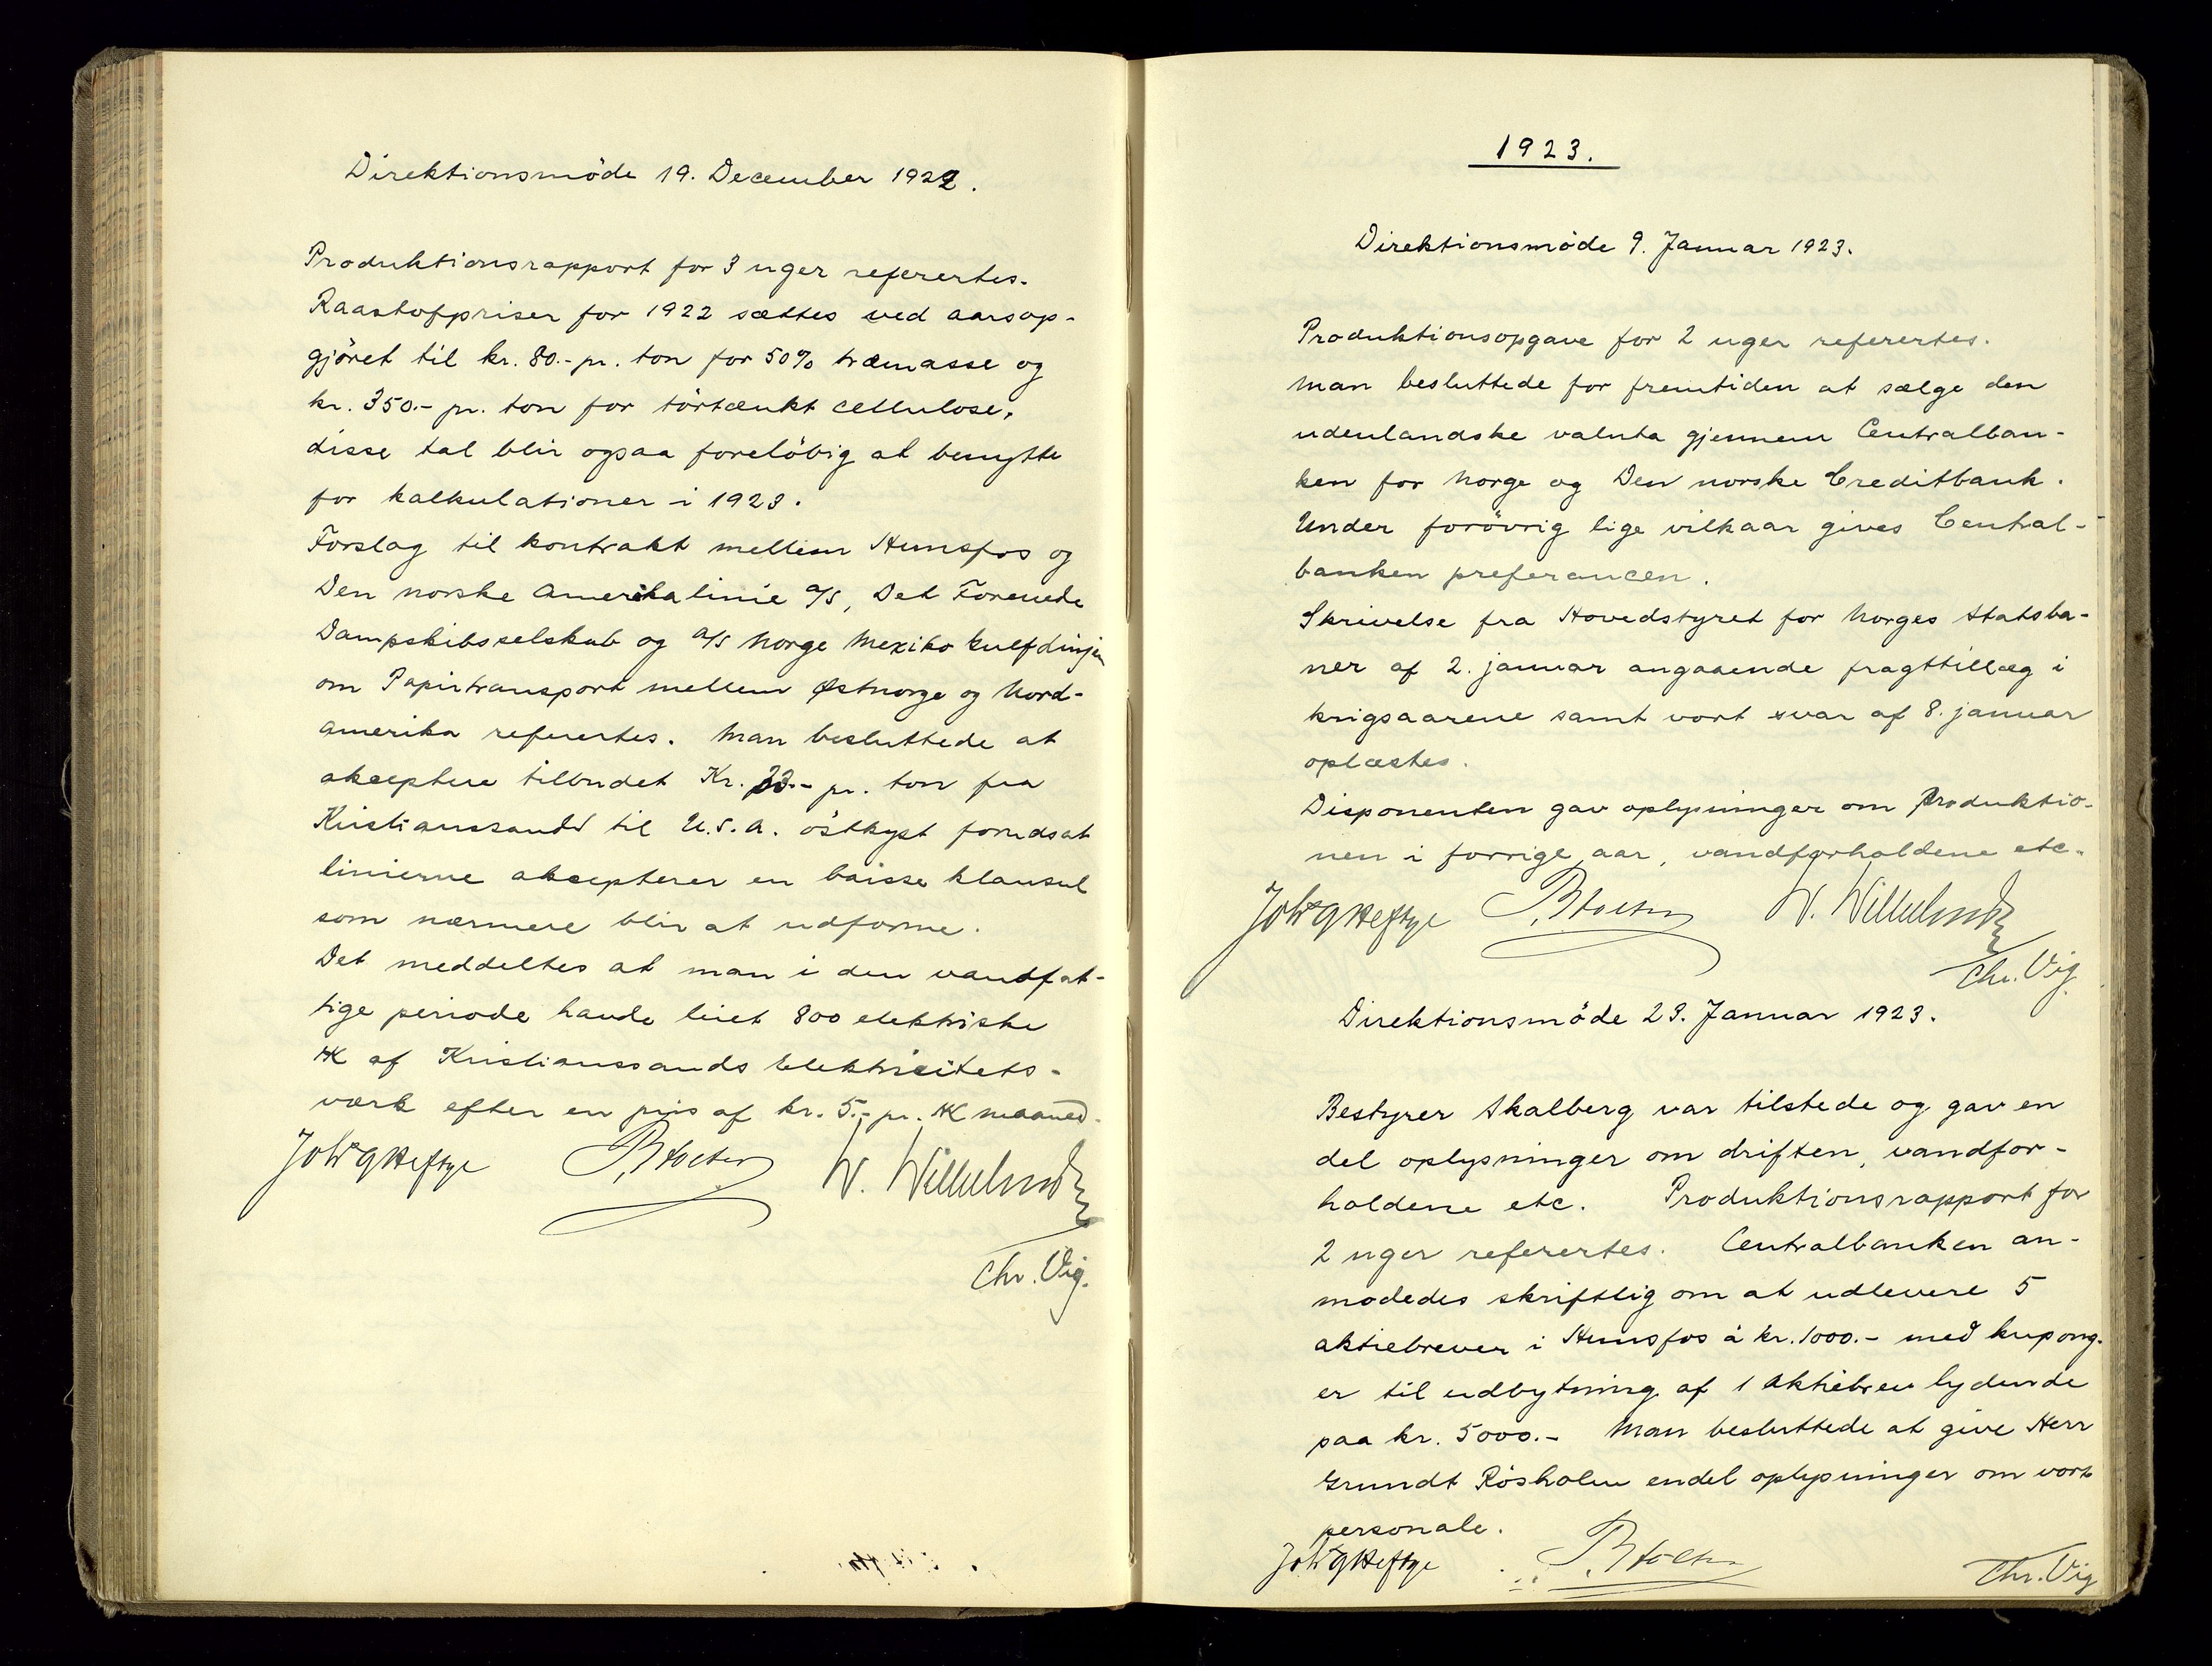 Direktionsmöde 19. December 1922.
Produktionsrapport for 3 uger referertes.
Raastofpriser for 1922 sættes ved aarsop-
gjöret til kr. 80.- pr. ton for 50% træmasse og
kr. 350.- pr. ton for törtænkt cellulose,
disse tal blir ogsaa foreløbig at benytte
for kalkulationer i 1923.
Forslag til kontrakt mellem Hunsfos og
Den norske Amerikalinie A/S, Det Forenede
Dampskibsselskab og A/S Norge Mexiko Gulf Linjen
om Papirtransport mellem Østnorge og Nord-
amerika referertes. Man besluttede at
akceptere tilbudet Kr. 33.- pr. ton fra
Kristianssand til U.S.A. östkyst forudsat
linierne akcepterer en baisse klausul
som nærmere blir at udforme.
Det meddeltes at man i den vandfat-
tige periode havde leiet 800 elektriske
HK af Kristianssands Elektricitets-
værk efter en pris af kr. 5.- pr. HK maaned.
Joh G Heftye P. Stoltz W. Willielmsen
Chr. Vig.
1923.
Direktionsmöde 9. Januar 1923.
Produktionsopgave for 2 uger referertes.
Man besluttede for fremtiden at sælge den
udenlandske valuta gjennem Centralban-
ken for Norge og Den norske Creditbank.
Under forövrig lige vilkaar gives Central-
banken preferancen.
Skrivelse fra Hovedstyret for Norges Statsba-
ner af 2. januar angaaende fragttillæg i
krigsaarene samt vort svar af 8. januar
oplæstes.
Disponenten gav oplysninger om produktio-
nen i forrige aar, vandforholdene etc.
Joh G Heftye P. Stoltz W. Willielmsen
Chr. Vig
Direktionsmöde 23. Januar 1923.
Bestyrer Skalberg var tilstede og gav en
del oplysninger om driften, vandfor-
holdene etc. Produktionsrapport for
2 uger referertes. Centralbanken an-
modedes skriftlig om at udlevere 5
aktiebrever i Hunsfos à kr. 1000.- med kupong-
er til udbytning af 1 aktiebrev lydende
paa kr. 5000.- Man besluttede at give Herr
Grundt Rösholm endel oplysninger om vort
personale.
Joh G Heftye P. Stoltz Chr. Vig